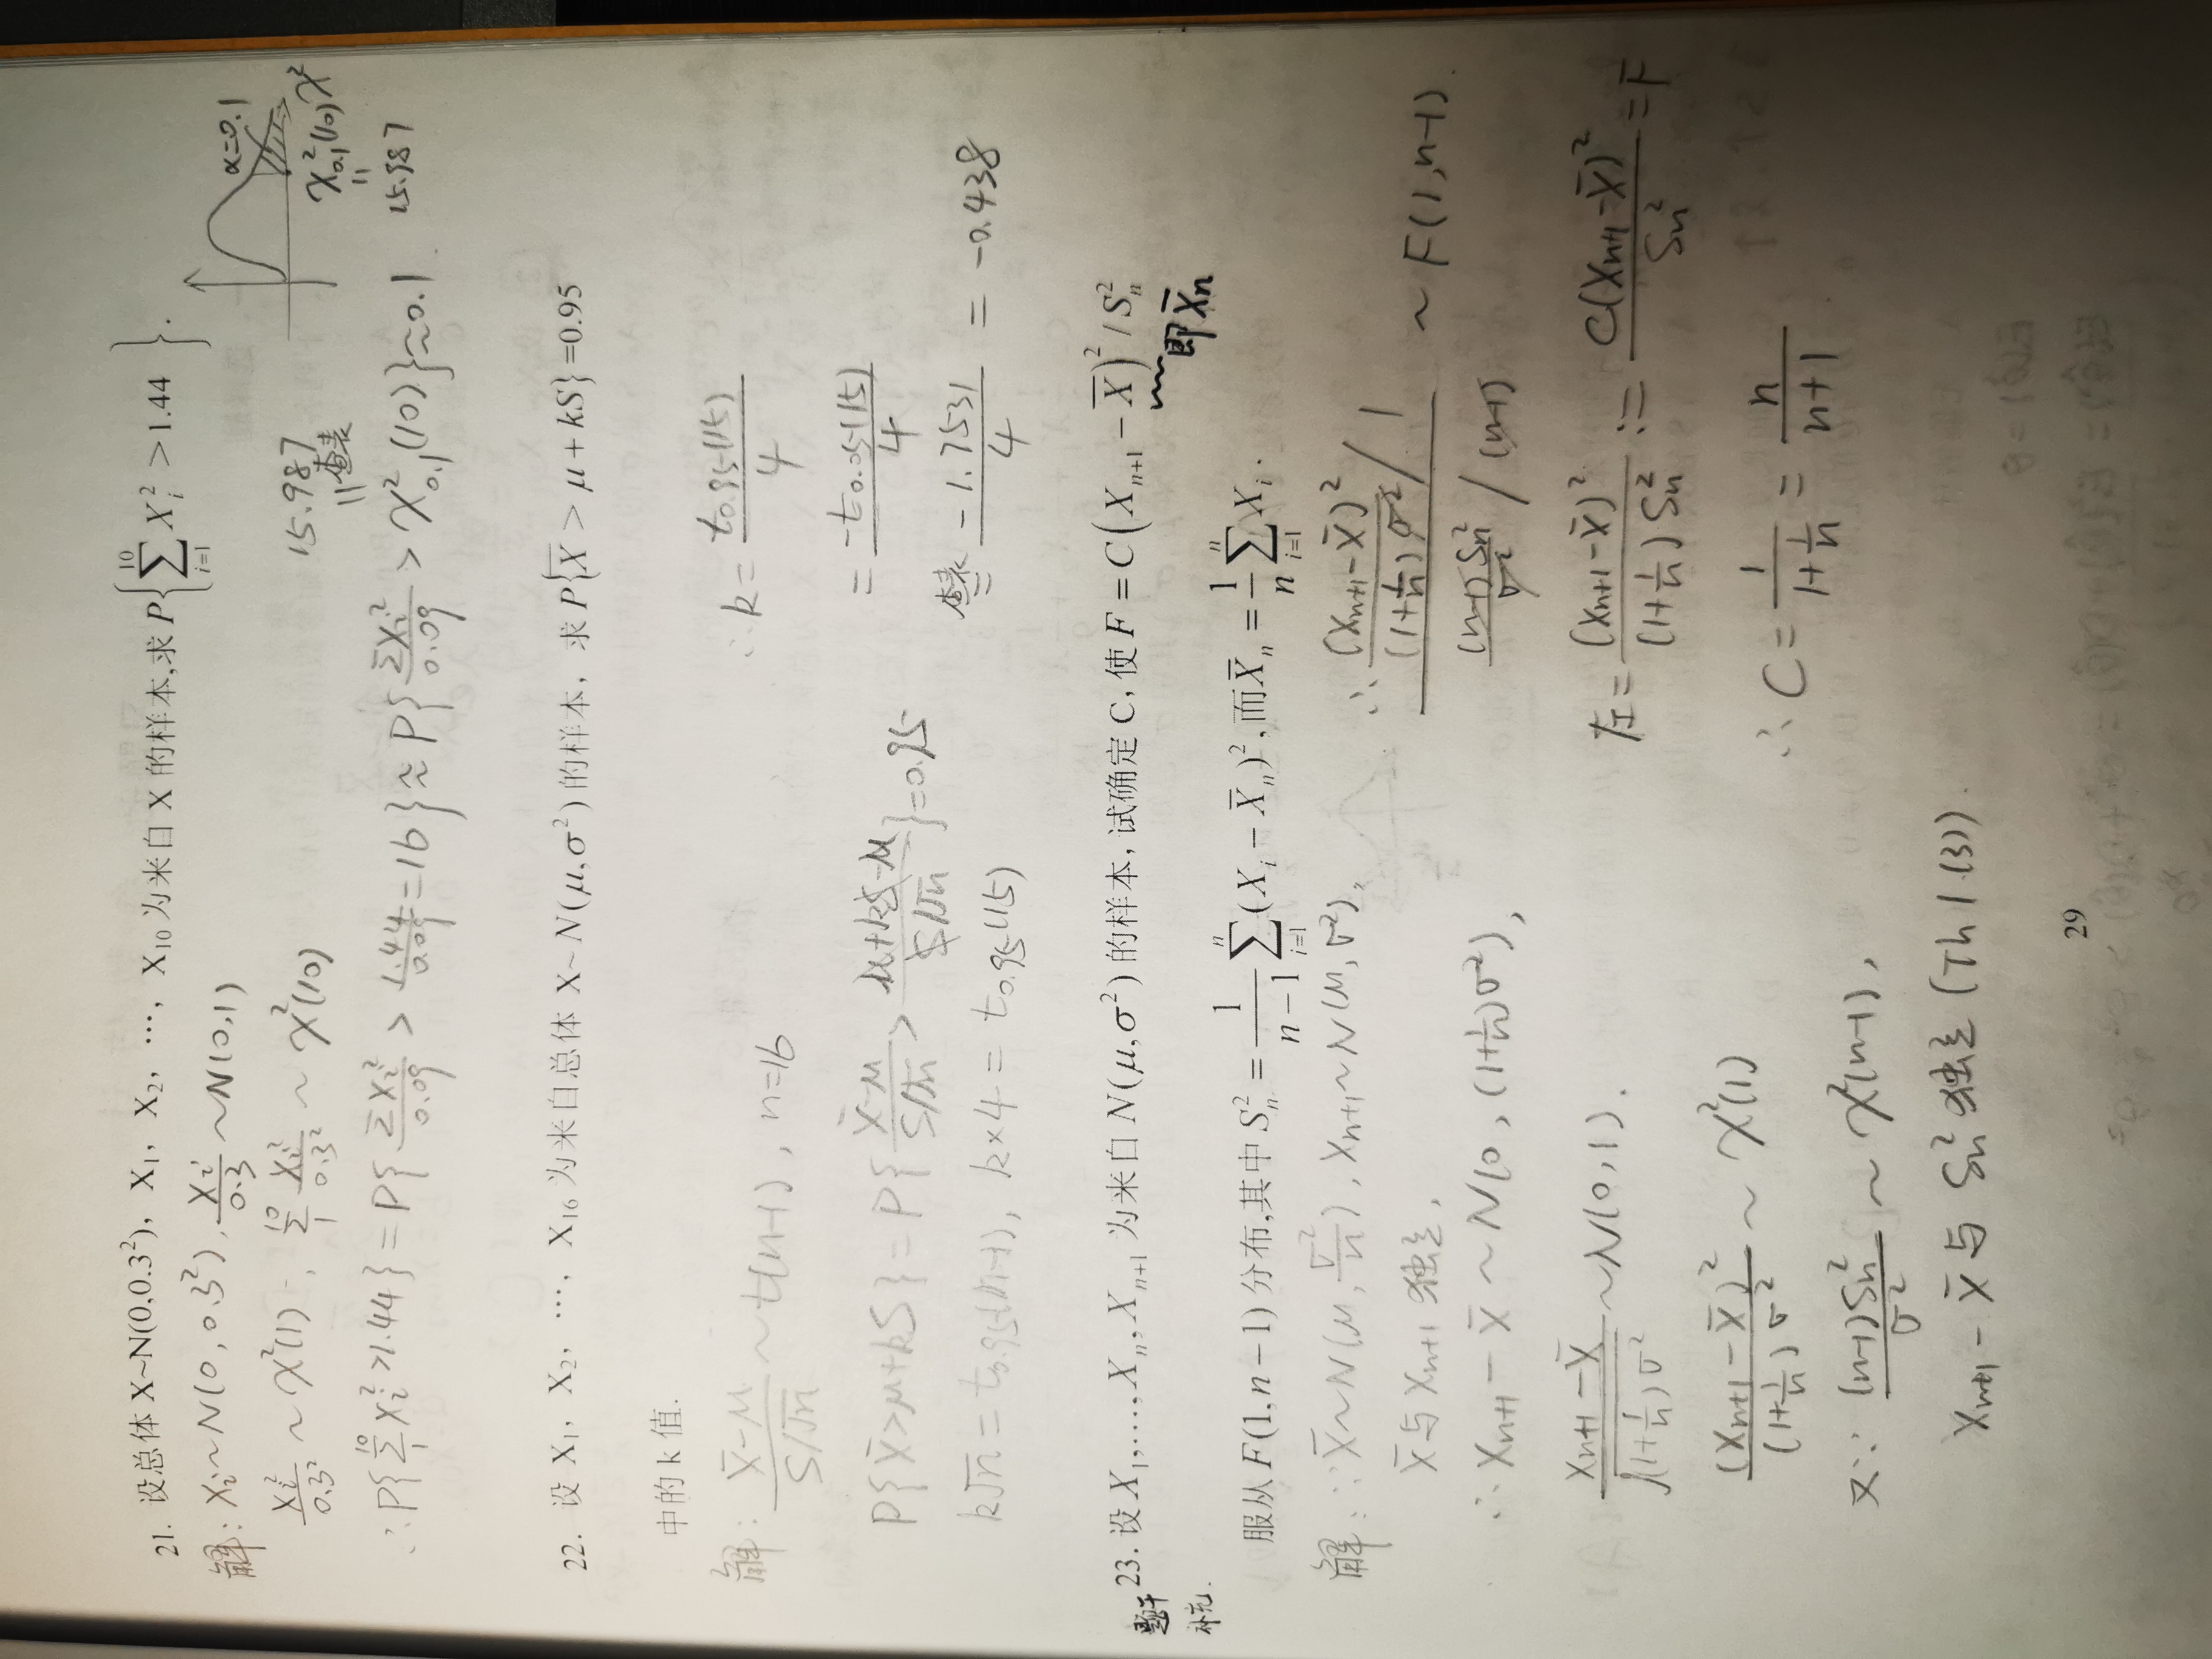 21. 设总体 X~N(0,0.3²)， X₁， X₂， …， X₁₀ 为来自 X 的样本,求 P{∑_{i=1}^{10} X_i² >1.44 }.
解: X_i~N(0,0.3²), X_i/0.3 ~N(0,1)
α=0.1
X_i²/0.3² ~ χ²(1), ∑_1^{10} X_i²/0.3² ~ χ²(10)
15.987
‖查表
χ²_{0.1}(10) χ²
‖
15.987
∴P{∑_1^{10} X_i²>1.44} = P{∑X_i²/0.09 > 1.44/0.09=16}≈P{∑X_i²/0.09 > χ²_{0.1}(10)}≈0.1.
22. 设 X₁， X₂， …， X₁₆ 为来自总体 X~N(μ,σ²) 的样本，求 P{X̄ > μ+kS}=0.95
中的 k 值.
解: (X̄-μ)/(S/√n) ~t(n-1), n=16
P{X̄>μ+kS}=P{(X̄-μ)/(S/√n) > (μ+kS-μ)/(S/√n)}=0.95
k√n = t_{0.95}(n-1), k×4 = t_{0.95}(15)
∴k= t_{0.95}(15)/4
= -t_{0.05}(15)/4
查表= -1.7531/4 = -0.438
题干
补充.
23. 设 X₁,…,X_n,X_{n+1} 为来自 N(μ,σ²) 的样本, 试确定 C, 使 F=C(X_{n+1}-X̄)²/S_n²
即X̄_n
服从 F(1,n-1) 分布,其中 S_n² = 1/(n-1) ∑_{i=1}^{n}(X_i-X̄_n)²,而X̄_n = 1/n ∑_{i=1}^{n} X_i.
解: ∵X̄~N(μ,σ²/n), X_{n+1}~N(μ,σ²),
X̄与X_{n+1}独立,
∴X_{n+1}-X̄ ~N(0,(1+1/n)σ²),
(X_{n+1}-X̄)/√((1+1/n)σ²) ~N(0,1).
(X_{n+1}-X̄)²/((1+1/n)σ²) ~ χ²(1)
又∵ (n-1)S_n²/σ² ~ χ²(n-1),
X_{n+1}-X̄与 S_n²独立 (Th1.(3)).
∴ [(X_{n+1}-X̄)²/((1+1/n)σ²) / 1] / [(n-1)S_n²/σ² / (n-1)] ~ F(1,n-1).
左= (X_{n+1}-X̄)²/((1+1/n)S_n²) := C(X_{n+1}-X̄)²/S_n² =F
∴C= 1/(1+1/n) = n/(n+1)
29